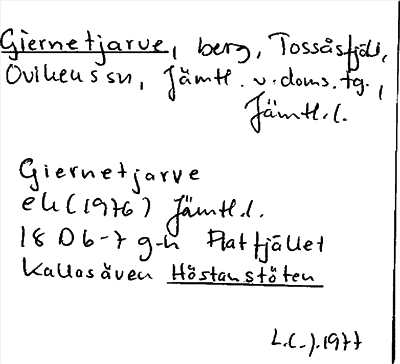 Giernetjarve, berg, Tossåsfjäll,
Ovikens sn, Jämtl. v. doms. tg.,
Jämtl. l.
Giernetjarve
ek (1976) Jämtl. l.
18 D 6-7 g-h Flatfjället
Kallas även Höstanstöten
L.C-).1977